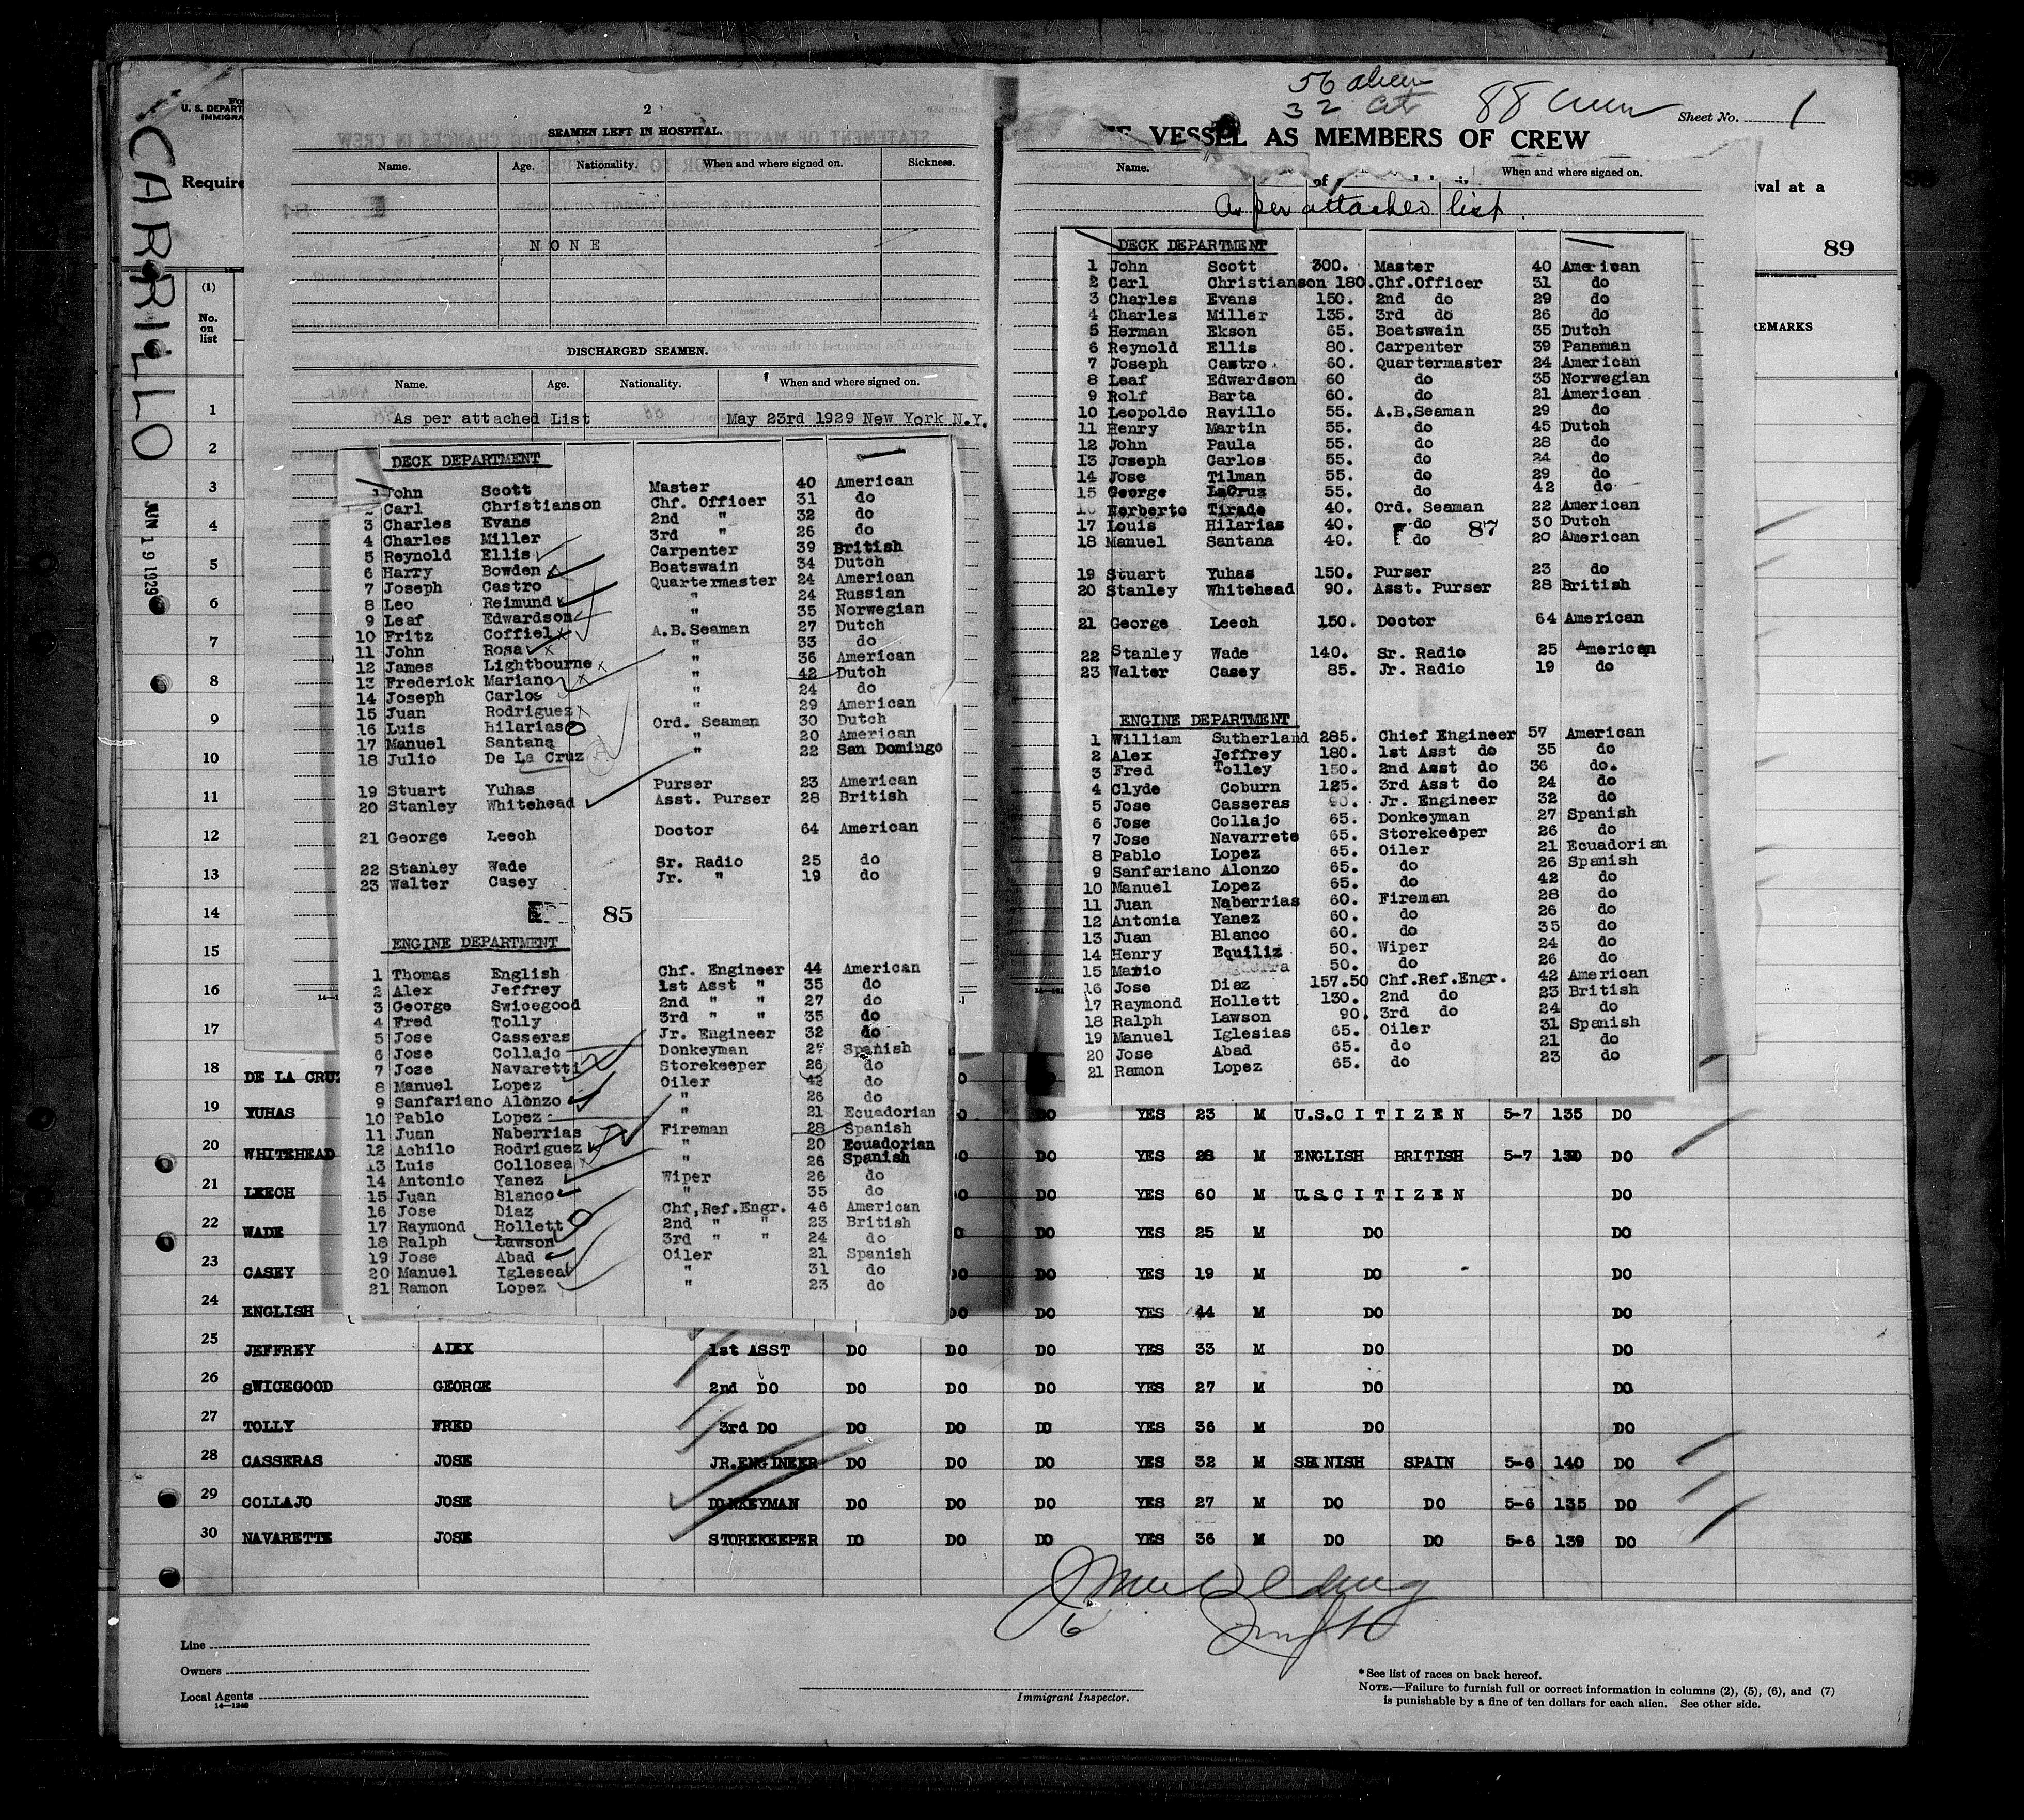 CARRILLO
JUN 19 1929
U. S. DEPART
IMMIGRA
Require
(1)
No.
on
list
1
2
3
4
5
6
7
8
9
10
11
12
13
14
15
16
17
2
SEAMEN LEFT IN HOSPITAL.
Name. Age. Nationality. When and where signed on. Sickness.
NONE
DISCHARGED SEAMEN.
Name. Age. Nationality. When and where signed on.
As per attached List May 23rd 1929 New York N.Y.
DECK DEPARTMENT
John Scott Master 40 American
Carl Christianson Chf. Officer 31 do
3 Charles Evans 2nd " 32 do
4 Charles Miller 3rd " 26 do
5 Reynold Ellis Carpenter 39 British
6 Harry Bowden Boatswain 34 Dutch
7 Joseph Castro Quartermaster 24 American
8 Leo Reimund " 24 Russian
9 Leaf Edwardson " 35 Norwegian
10 Fritz Coffiel A.B.Seaman 27 Dutch
11 John Rosa " 33 do
12 James Lightbourne " 36 American
13 Frederick Mariano " 42 Dutch
14 Joseph Carlos " 24 do
15 Juan Rodriguez " 29 American
16 Luis Hilarias Ord. Seaman 30 Dutch
17 Manuel Santana " 20 American
18 Julio De La Cruz " 22 San Domingo
19 Stuart Yuhas Purser 23 American
20 Stanley Whitehead Asst. Purser 28 British
21 George Leech Doctor 64 American
22 Stanley Wade Sr. Radio 25 do
23 Walter Casey Jr. " 19 do
85
ENGINE DEPARTMENT
1 Thomas English Chf. Engineer 44 American
2 Alex Jeffrey 1st Asst " 35 do
3 George Swicegood 2nd " " 27 do
4 Fred Tolly 3rd " " 35 do
5 Jose Casseras Jr. Engineer 32 do
6 Jose Collajo Donkeyman 27 Spanish
7 Jose Navaretti Storekeeper 26 do
8 Manuel Lopez Oiler 42 do
9 Sanfariano Alonzo " 26 do
10 Pablo Lopez " 21 Ecuadorian
11 Juan Naberrias Fireman 28 Spanish
12 Achilo Rodriguez " 20 Ecuadorian
13 Luis Collosea " 26 Spanish
14 Antonio Yanez Wiper 26 do
15 Juan Blanco " 35 do
16 Jose Diaz Chf,Ref.Engr. 46 American
17 Raymond Hollett 2nd " " 23 British
18 Ralph Lawson 3rd " " 24 do
19 Jose Abad Oiler 21 Spanish
20 Manuel Iglesea " 31 do
21 Ramon Lopez " 23 do
56 alien
32 cit
88 crew
Sheet No. 1
VESSEL AS MEMBERS OF CREW
Name. When and where signed on.
ival at a
As per attached list.
89
EMARKS
DECK DEPARTMENT
1 John Scott 300. Master 40 American
2 Carl Christianson 180. Chf.Officer 31 do
3 Charles Evans 150. 2nd do 29 do
4 Charles Miller 135. 3rd do 26 do
5 Herman Ekson 65. Boatswain 35 Dutch
6 Reynold Ellis 80. Carpenter 39 Panaman
7 Joseph Castro 60. Quartermaster 24 American
8 Leaf Edwardson 60 do 35 Norwegian
9 Rolf Barta 60. do 21 American
10 Leopoldo Ravillo 55. A.B.Seaman 29 do
11 Henry Martin 55. do 45 Dutch
12 John Paula 55. do 28 do
13 Joseph Carlos 55. do 24 do
14 Jose Tilman 55. do 29 do
15 George LaCruz 55. do 42 do
16 Norberto Tirado 40. Ord. Seaman 22 American
17 Louis Hilarias 40. do 30 Dutch
18 Manuel Santana 40. do 20 American
87
19 Stuart Yuhas 150. Purser 23 do
20 Stanley Whitehead 90. Asst. Purser 28 British
21 George Leech 150. Doctor 64 American
22 Stanley Wade 140. Sr. Radio 25 American
23 Walter Casey 85. Jr. Radio 19 do
ENGINE DEPARTMENT
1 William Sutherland 285. Chief Engineer 57 American
2 Alex Jeffrey 180. 1st Asst do 35 do
3 Fred Tolley 150. 2nd Asst do 36 do.
4 Clyde Coburn 125. 3rd Asst do 24 do
5 Jose Casseras 90. Jr. Engineer 32 do
6 Jose Collajo 65. Donkeyman 27 Spanish
7 Jose Navarrete 65. Storekeeper 26 do
8 Pablo Lopez 65. Oiler 21 Ecuadorian
9 Sanfariano Alonzo 65. do 26 Spanish
10 Manuel Lopez 65. do 42 do
11 Juan Naberrias 60. Fireman 28 do
12 Antonia Yanez 60. do 26 do
13 Juan Blanco 60. do 35 do
14 Henry Equiliz 50. Wiper 24 do
15 Mario 50. do 26 do
16 Jose Diaz 157.50 Chf.Ref.Engr. 42 American
17 Raymond Hollett 130. 2nd do 23 British
18 Ralph Lawson 90. 3rd do 24 do
19 Manuel Iglesias 65. Oiler 31 Spanish
20 Jose Abad 65. do 21 do
21 Ramon Lopez 65. do 23 do
18 DE LA CRUZ
19 YUHAS DO YES 23 M U.S.CITIZEN 5-7 135 DO
20 WHITEHEAD DO YES 28 M ENGLISH BRITISH 5-7 130 DO
21 LEECH DO YES 60 M U.S.CITIZEN DO
22 WADE DO YES 25 M DO DO
23 CASEY DO DO YES 19 M DO DO
24 ENGLISH DO DO YES 44 M DO DO
25 JEFFREY ALEX 1st ASST DO DO DO YES 33 M DO DO
26 SWICEGOOD GEORGE 2nd DO DO DO DO YES 27 M DO DO
27 TOLLY FRED 3rd DO DO DO DO YES 36 M DO DO
28 CASSERAS JOSE JR.ENGINEER DO DO DO YES 32 M SPANISH SPAIN 5-6 140 DO
29 COLLAJO JOSE DONKEYMAN DO DO DO YES 27 M DO DO 5-6 135 DO
30 NAVARETTE JOSE STOREKEEPER DO DO DO YES 36 M DO DO 5-6 139 DO
Line
Owners
Local Agents
14—1240
Immigrant Inspector.
*See list of races on back hereof.
NOTE.—Failure to furnish full or correct information in columns (2), (5), (6), and (7)
is punishable by a fine of ten dollars for each alien. See other side.